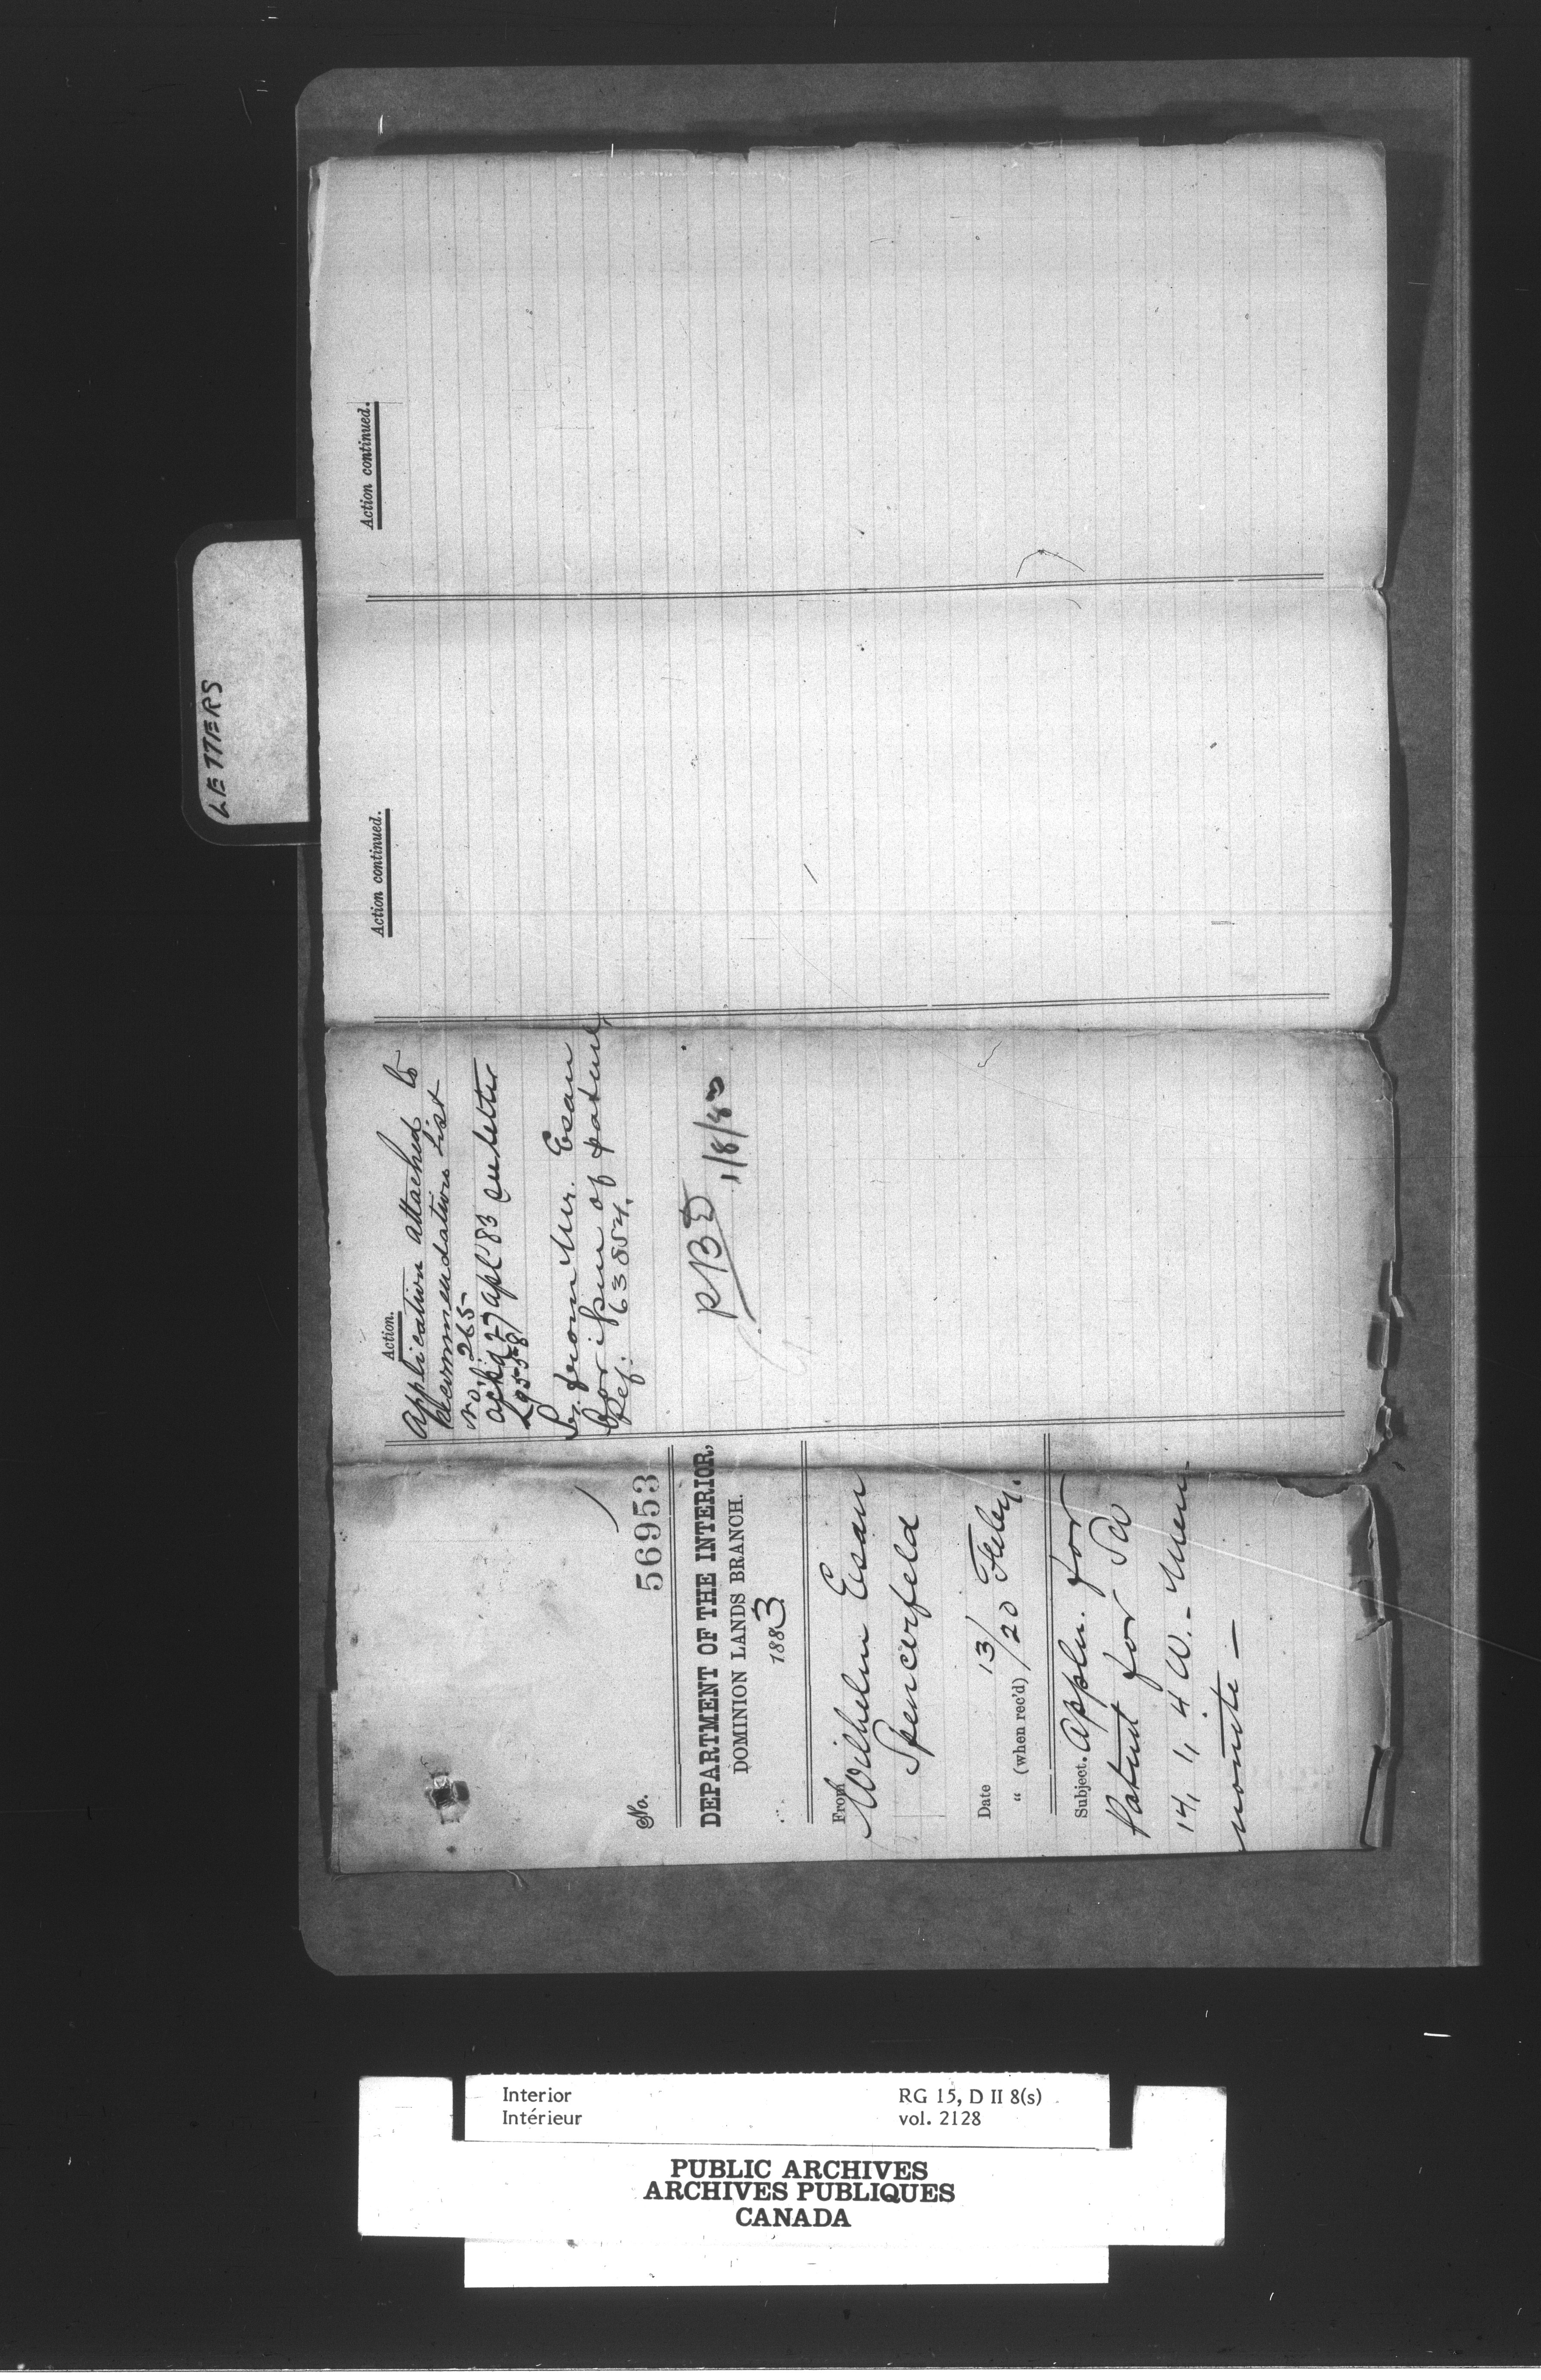 LETTERS
No. 56953
DEPARTMENT OF THE INTERIOR,
DOMINION LANDS BRANCH.
1883
From Wilhelm Esau
Spencerfeld
Date 13/
" (when rec'd) /20 Feby.
Subject. Appln. for
Patent for SW
14, 1, 4 W. - Men-
nonite -
Action.
Application attached to
Recommendation List
No. 265
Ackd 27 apl '83 letter
L955-8
from Mr. Esau
for issue of patent
Ref: 63854.
1/8/83
Action continued.
Action continued.
Interior
Intérieur
RG 15, D II 8(s)
vol. 2128
PUBLIC ARCHIVES
ARCHIVES PUBLIQUES
CANADA